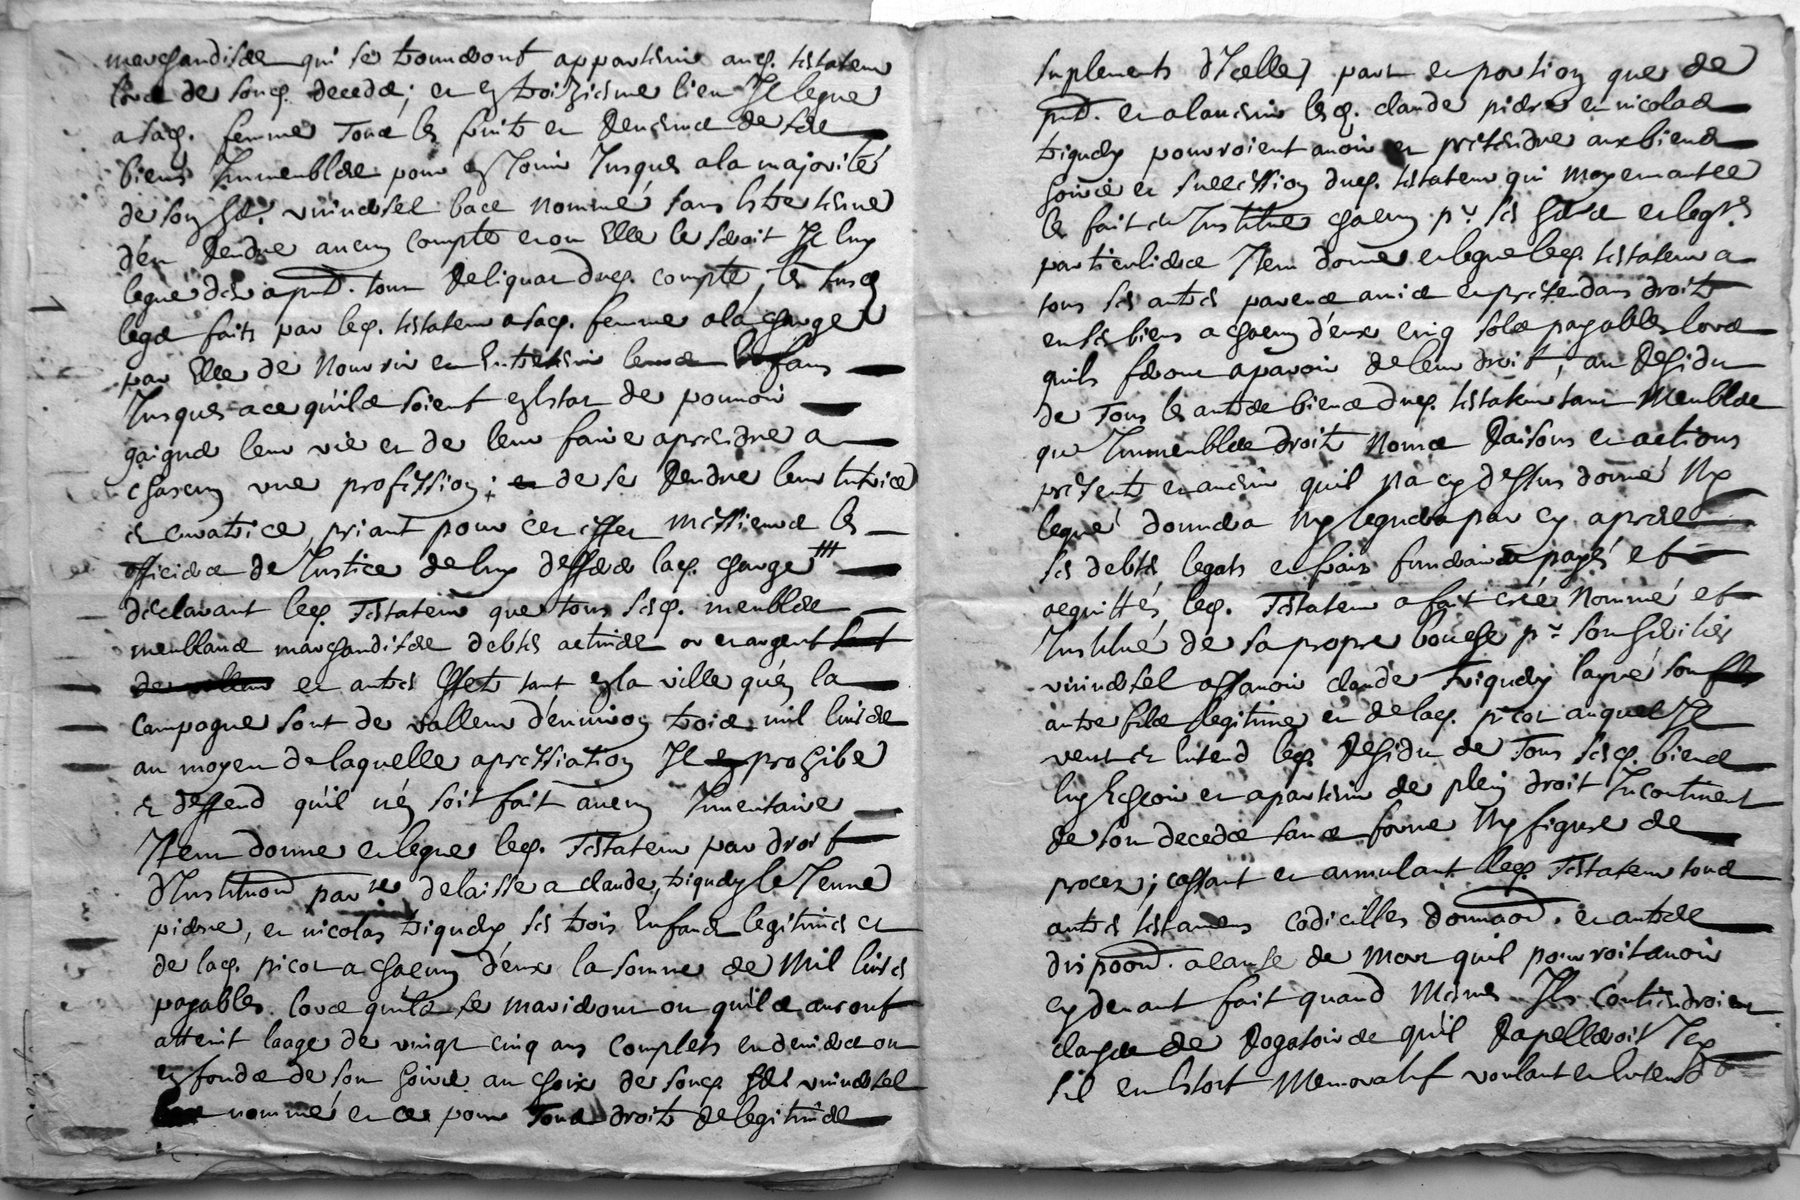 marchandises qui se trouveront appartenir aud. testateur
lors de sond. deceds; et en troiziesme lieu Il legue
a sad. femme Tous les fruits et Revenus de ses
biens Immeubles pour en Jouir Jusques a la majorité
de son her. universel bace nommé sans estre tenue
d'en Rendre aucun compte et ou Elle le seroit Il luy
legue des apnt. tout Reliquat dud. compte, les susd.
legs faits par led. testateur a sad. femme a la charge
par Elle de Nourrir et Entretenir leurs Enfans
Jusques a ce qu'ils soient en estat de pouvoir
gaigner leur vie et de leur faire aprendre a
chascun une profession; et de se Rendre leur tutrice
et curatrice, priant pour cet effet messieurs les
officiers de Justice de luy defferer lad. charge
déclarant led. Testateur que tous sesd. meubles
meublans marchandises debtes actives or et argent
et autres Effets tant en la ville qu'en la
Campagne sont de valleur d'environ trois mil livres
au moyen de laquelle apretiation Il prohibe
et deffend qu'il n'en soit fait aucun Inventaire
Item donne et legue led. Testateur par droit
d'Instituon par.re delaisse a claude, triquely le Jeune
pierre, et nicolas triquely ses trois Enfans legitimes et
de lad. picot a chacun d'eux la somme de Mil livres
payables lors qu'ils se marieront ou qu'ils auront
atteint laage de vingt cinq ans Complets en deniers ou
en fonds de son hoirie au choix de sond. her. universel
nommé et ce pour Tous droits de legitimes
suplements d'Icelles, part et portion que de
pnt. et a l'avenir lesd. claude pierre et nicolas
triquely pourroient avoir et prétendre aux biens
hoirie et succession dud. testateur qui moyenant ce
les fait et Institue chacun pr. ses hers et legres
particuliers Item donne et legue led. testateur a
tous ses autres parens amis et prétendans droits
en ses biens a chacun d'eux cinq sols payables lors
quils feront aparoir de leur droit, au Residu
de Tous les autres biens dud. testateur tant Meubles
que Immeubles droits Noms Raisons et actions
présents et avenir quil na cy dessus donné Ny
legué donnera Ny leguera par cy apres
ses debtes legats et frais funeraires payés et
acquittés, led. Testateur a fait créé Nommé et
Institué de sa propre bouche pr. son heritier
universel assavoir claude triquely layné son
autre fils legitime et de lad. picot auquel Il
veut et Entend led. Residu de Tous sesd. biens
luy Echoir et apartenir de plein droit Incontinent
de son deceds sans forme Ny figure de
procez; cassant et annulant led. Testateur tous
autres testamens codicilles donnaon. et autres
dispoon. a cause de Mort quil pourroit avoir
cy devant fait quand Mesmes Ils Contiendroient
clause de Rogatoires qu'il Rapelleroit Icy
sil en Estoit Memoratif voulant et Entend